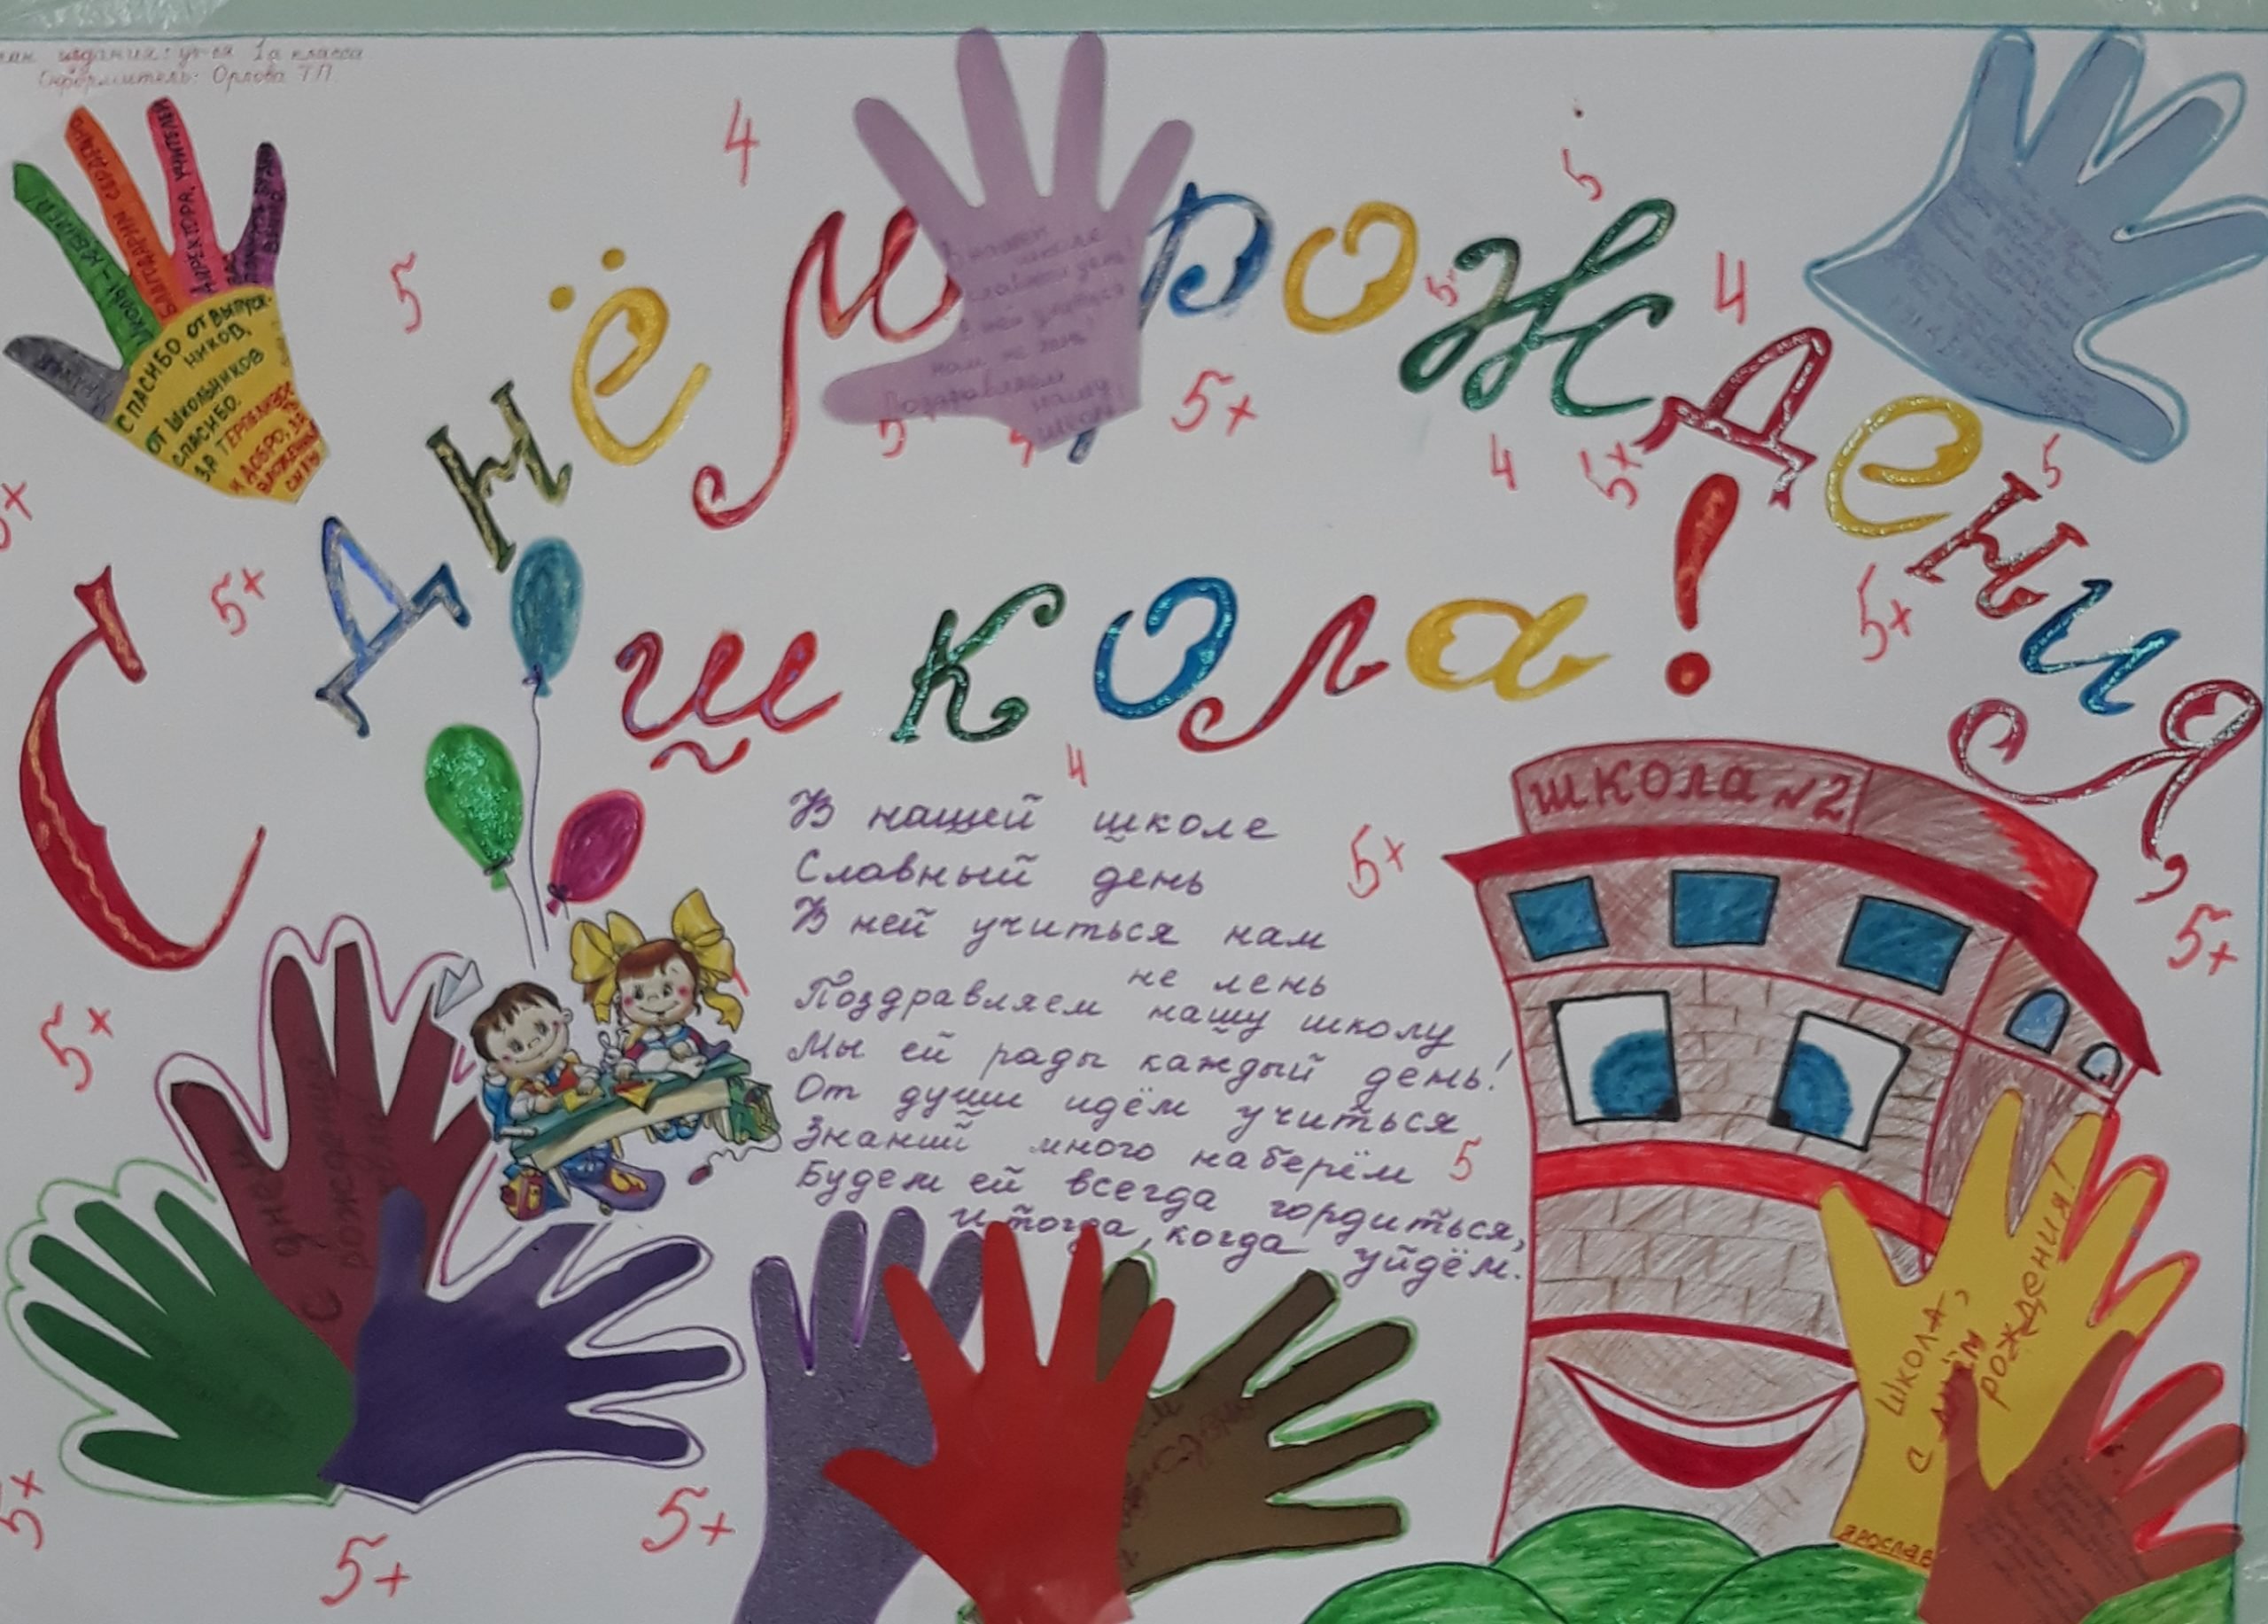 издания: уч-ся 1а класса
Оформитель: Орлова Т.П.
С днём рождения,
школа!
4
5
5
4
5+
5+
5+
4
5+
5
5+
4
В нашей школе
Славный день
В ней учиться нам
не лень
Поздравляем нашу школу
Мы ей рады каждый день!
От души идём учиться
Знаний много наберём
Будем ей всегда гордиться,
и тогда, когда уйдём.
5+
5
5+
5+
5+
5+
5+
школа №2
школы-юбилей!
благодарим сердечно
директора, учителей
СПАСИБО ОТ ВЫПУСК-
НИКОВ,
ОТ ШКОЛЬНИКОВ
СПАСИБО.
ЗА ТЕРПЕЛИВОСТЬ
И ДОБРО, ЗА
ВЛОЖЕННЫЕ
СИЛЫ
В нашей
школе
славный день!
В ней учиться
нам не лень!
Поздравляем
нашу
школу!
С днём
рождения
ШКОЛА,
С ДНЁМ
РОЖДЕНИЯ!
ЯРОСЛАВ